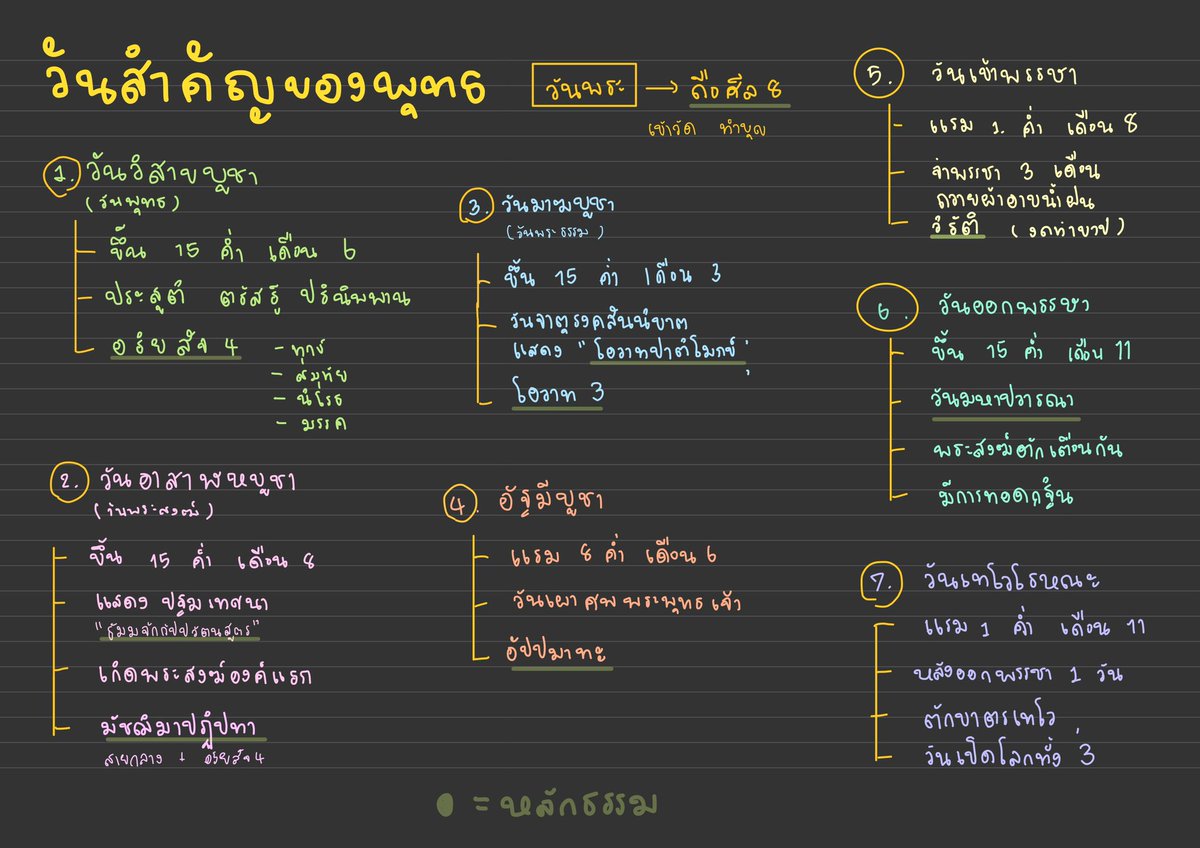 วันสำคัญของพุทธ
วันพระ → ถือศีล 8
เข้าวัด ทำบุญ
1. วันวิสาขบูชา
(วันพุทธ)
- ขึ้น 15 ค่ำ เดือน 6
- ประสูติ ตรัสรู้ ปรินิพพาน
- อริยสัจ 4
- ทุกข์
- สมุทัย
- นิโรธ
- มรรค
2. วันอาสาฬหบูชา
(วันพระสงฆ์)
- ขึ้น 15 ค่ำ เดือน 8
- แสดง ปฐมเทศนา
"ธัมมจักกัปปวัตนสูตร"
- เกิดพระสงฆ์องค์แรก
- มัชฌิมาปฏิปทา
สายกลาง + อริยสัจ 4
3. วันมาฆบูชา
(วันพระธรรม)
- ขึ้น 15 ค่ำ เดือน 3
- วันจาตุรงคสันนิบาต
แสดง "โอวาทปาติโมกข์"
- โอวาท 3
4. อัฐมีบูชา
- แรม 8 ค่ำ เดือน 6
- วันเผาศพพระพุทธเจ้า
- อัปปมาทะ
5. วันเข้าพรรษา
- แรม 1 ค่ำ เดือน 8
- จำพรรษา 3 เดือน
ถวายผ้าอาบน้ำฝน
- วิรัติ (งดทำบาป)
6. วันออกพรรษา
- ขึ้น 15 ค่ำ เดือน 11
- วันมหาปวารณา
- พระสงฆ์ตักเตือนกัน
- มีการทอดกฐิน
7. วันเทโวโรหณะ
- แรม 1 ค่ำ เดือน 11
- หลังออกพรรษา 1 วัน
- ตักบาตรเทโว
- วันเปิดโลกทั้ง 3
= หลักธรรม